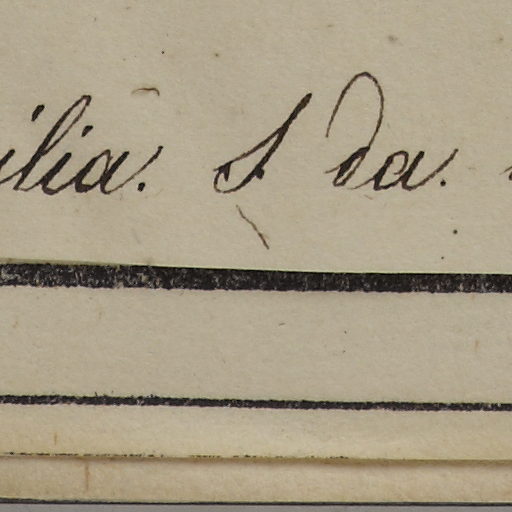 ilia. S da.